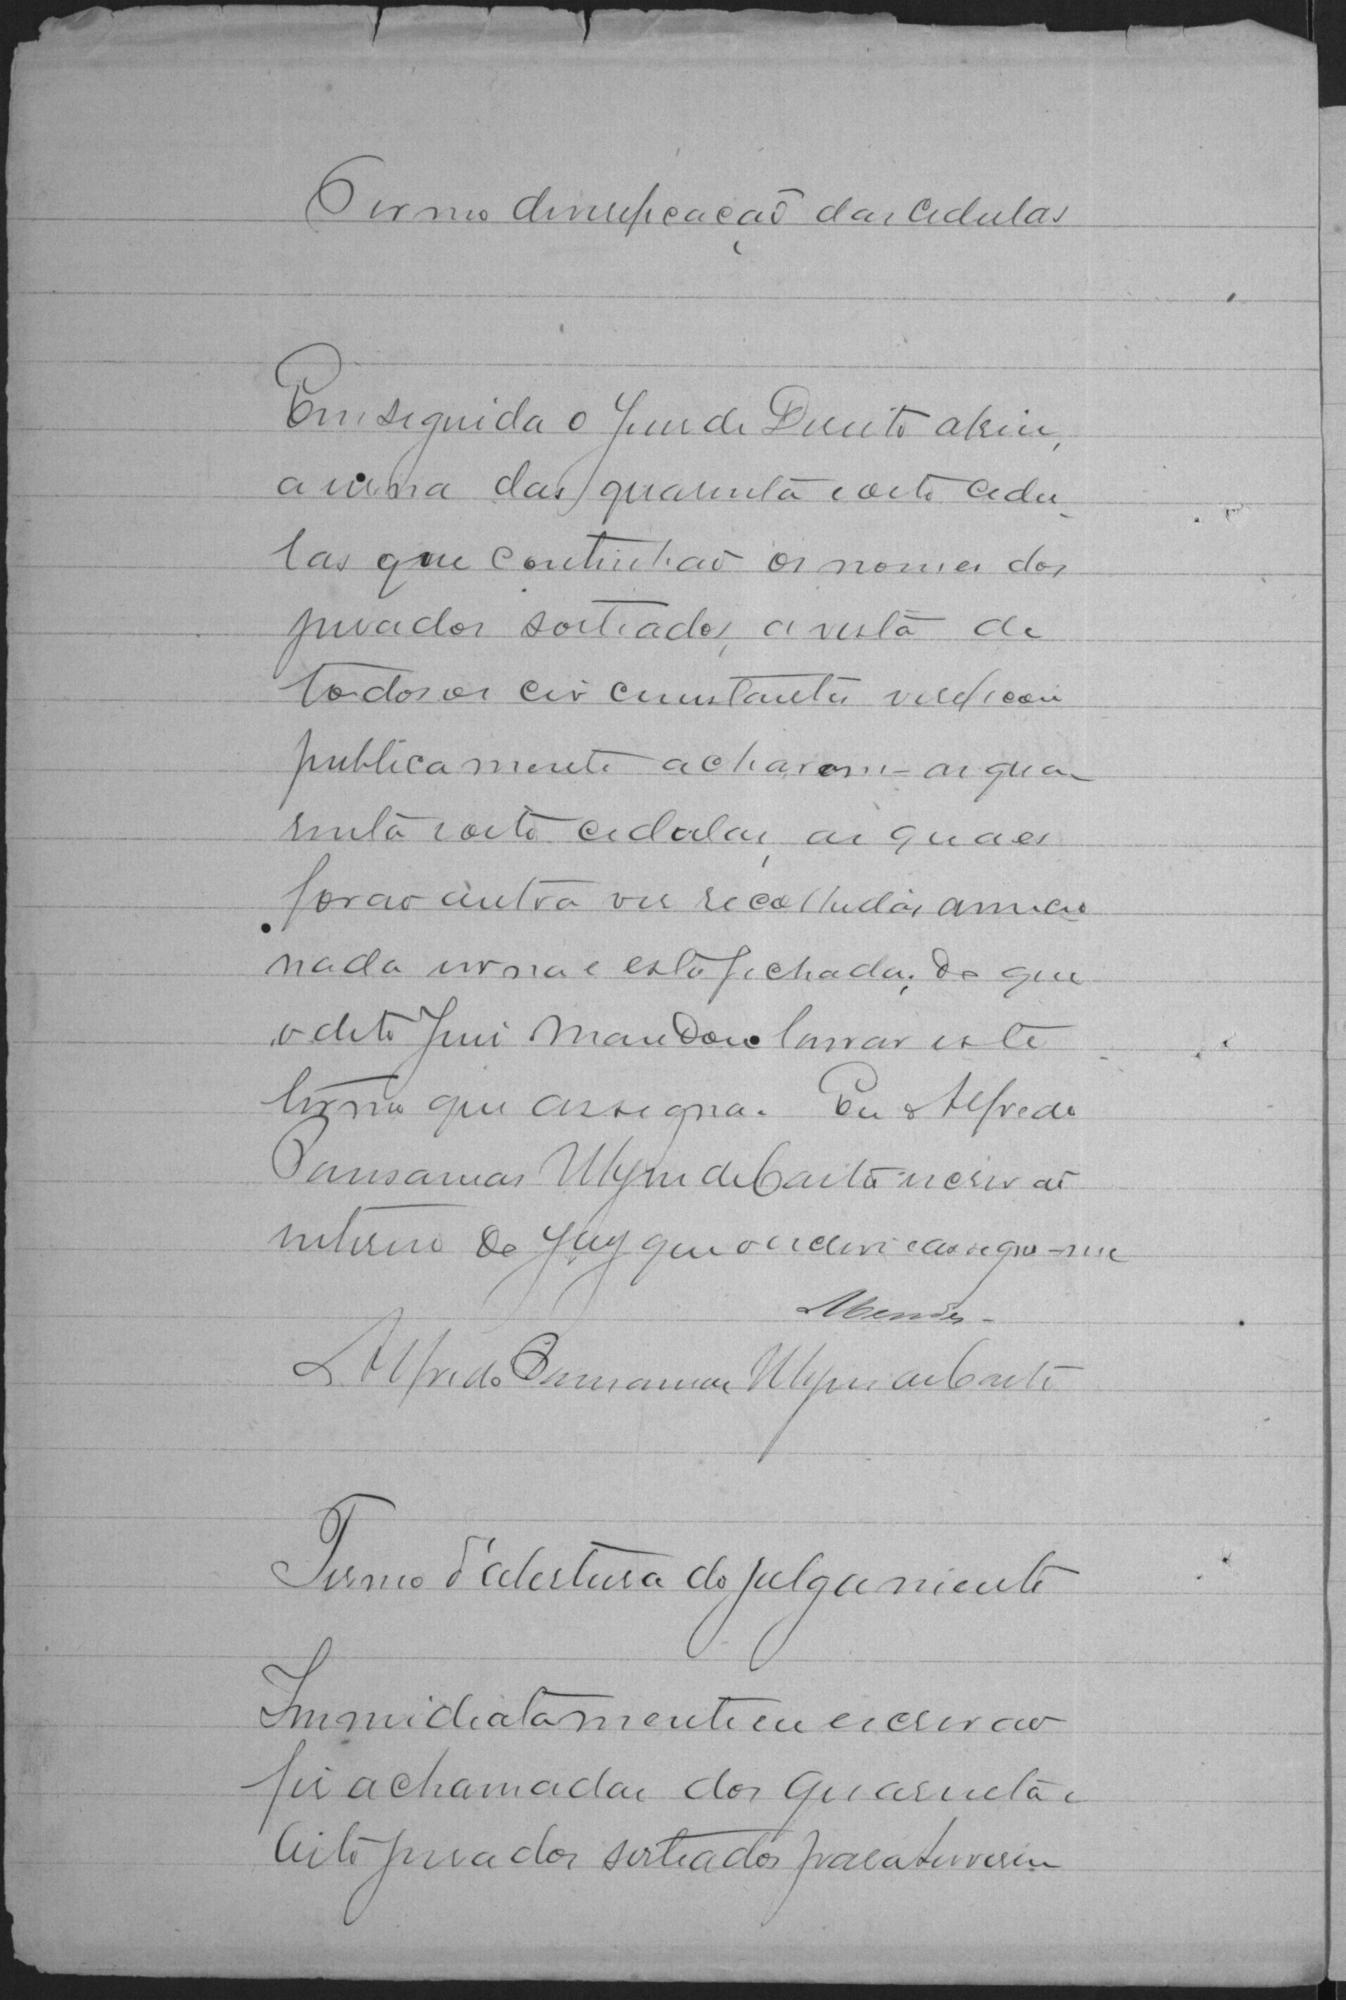 Termo de verificação das cedulas
Em seguida o Juiz de Direito abrin,
a urna das quarenta e oito cedu-
las que continhaõ os nomes dos
jurados sorteados, a vista de
todos os circumstantes verificou
publicamente acharem-se as qua-
renta e oito cedulas, as quaes
foraõ outra vez recolhidas a mencio
nada urna e esta fechada; do que
o dito Juiz mandou lavrar este
termo que assigna. Eu Alfredo
de Couto escrivaõ
interino do Jury que o escrevi e assigno-me
Mendes.
Alfredo de Couto
Termo d'abertura do julgamento
Immidiatamente eu escrivaõ
fiz a chamada dos quarenta e
oito jurados sorteados para servirem